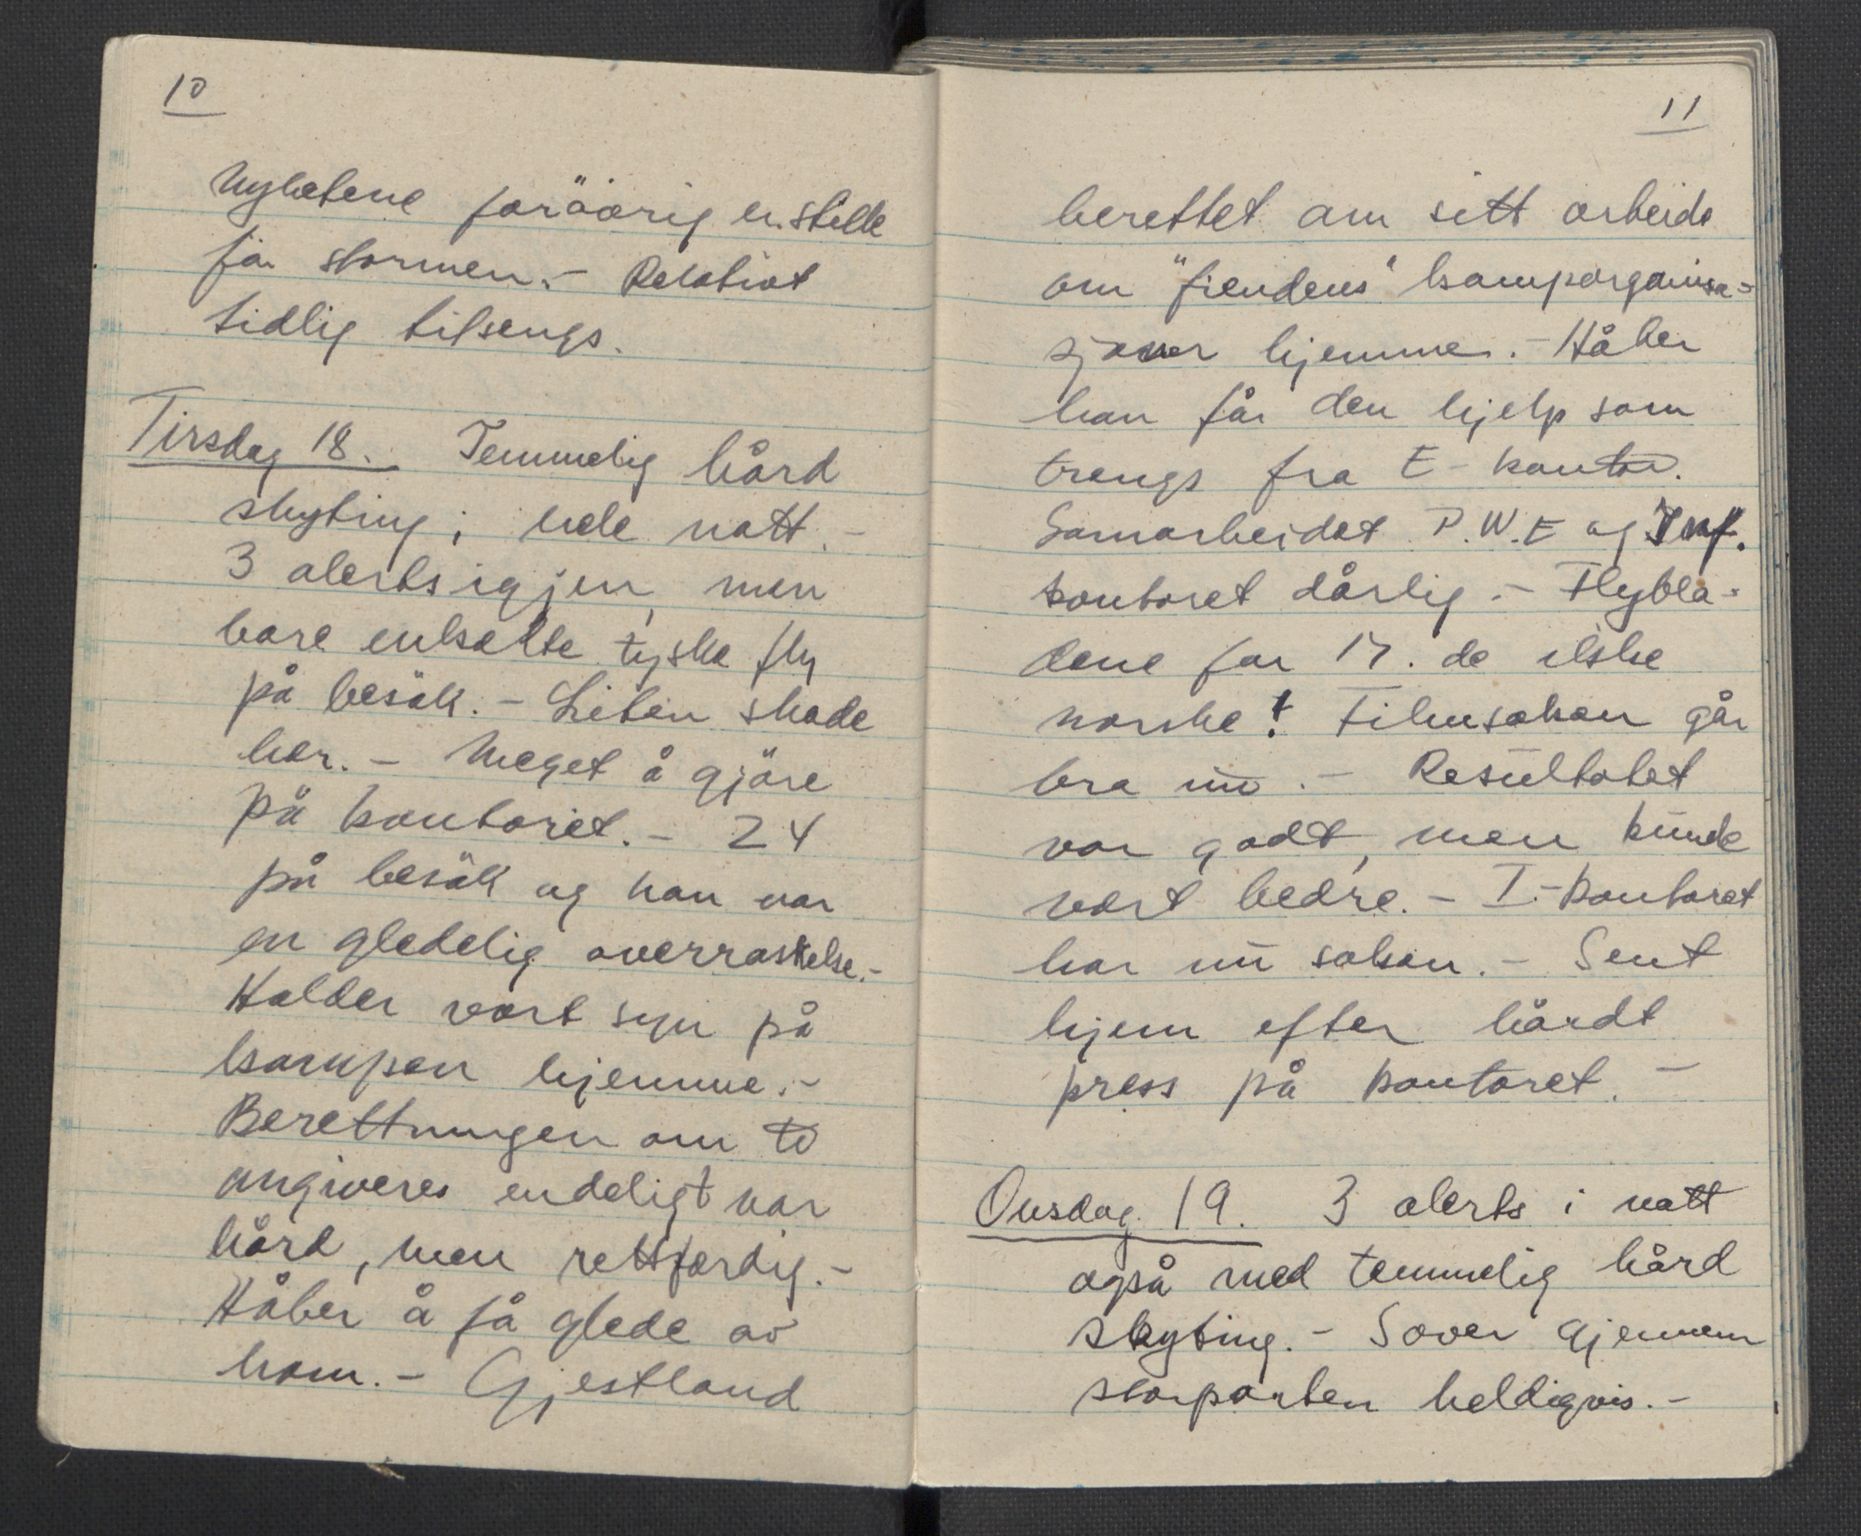 10
Nyhetene foröörig er stille
för stormen.- Relativt
tidlig tilsengs.
Tirsdag 18. Temmelig hård
skyting i hele natt.-
3 alerts igjen, men
bare enkelte tyske fly
på besök. - Liten skade
her. - Meget å gjöre
på kontoret. - 24
på besök og han var
en gledelig overraskelse.-
Holder vort syn på
kampen hjemme.-
Berettningen om to
angiveres endeligt var
hård, men rettferdig.-
Håber å få glede av
ham. - Gjestland
11
berettet om sitt arbeide
om "fiendens" kamporganisa-
sjoner hjemme. - Håber
han får den hjelp som
trengs fra E-kontor.
Samarbeidet P.W.E og Inf.
kontoret dårlig. - Flybla-
dene for 17. de ilske
norske! Filmsaken går
bra nu. - Resultatet
var godt, men kunde
vært bedre. - I.-kontoret
har nu saken. - Sent
hjem efter hårdt
press på kontoret. -
Onsdag 19. 3 alerts i natt
også med temmelig hård
skyting. - Sover gjennem
storparten heldigvis. -